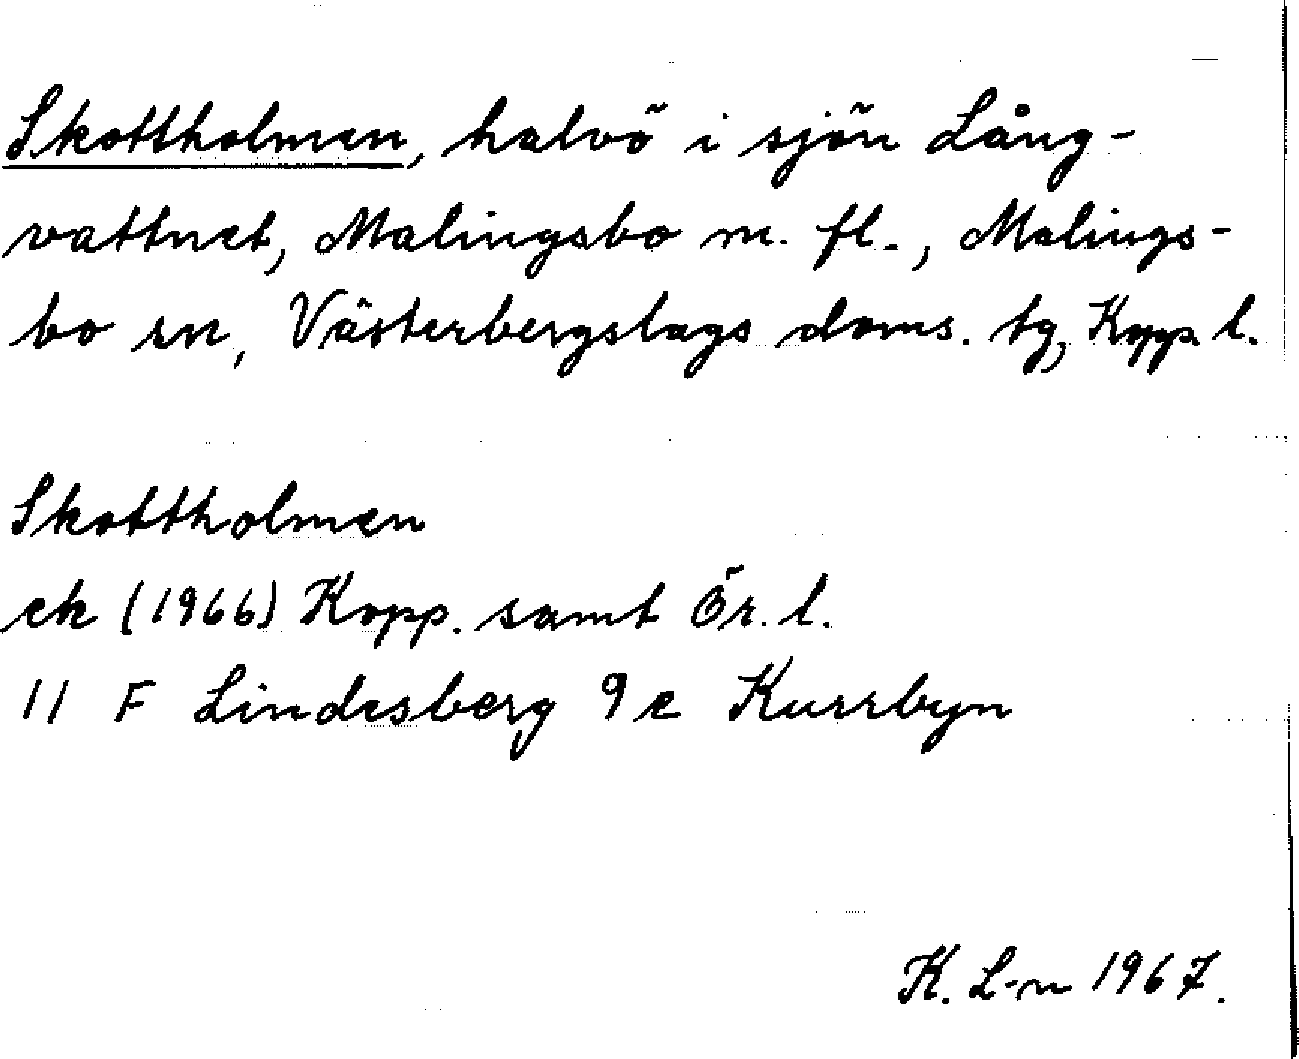 Skottholmen, halvö i sjön Lång-
vattnet, Malingsbo m. fl., Malings-
bo sn, Västerbergslags doms. tg, Kopp. l.
Skottholmen
ek (1966) Kopp. samt Ör. l.
11 F Lindesberg 9 e Kurrbyn
K. L-n 1967.